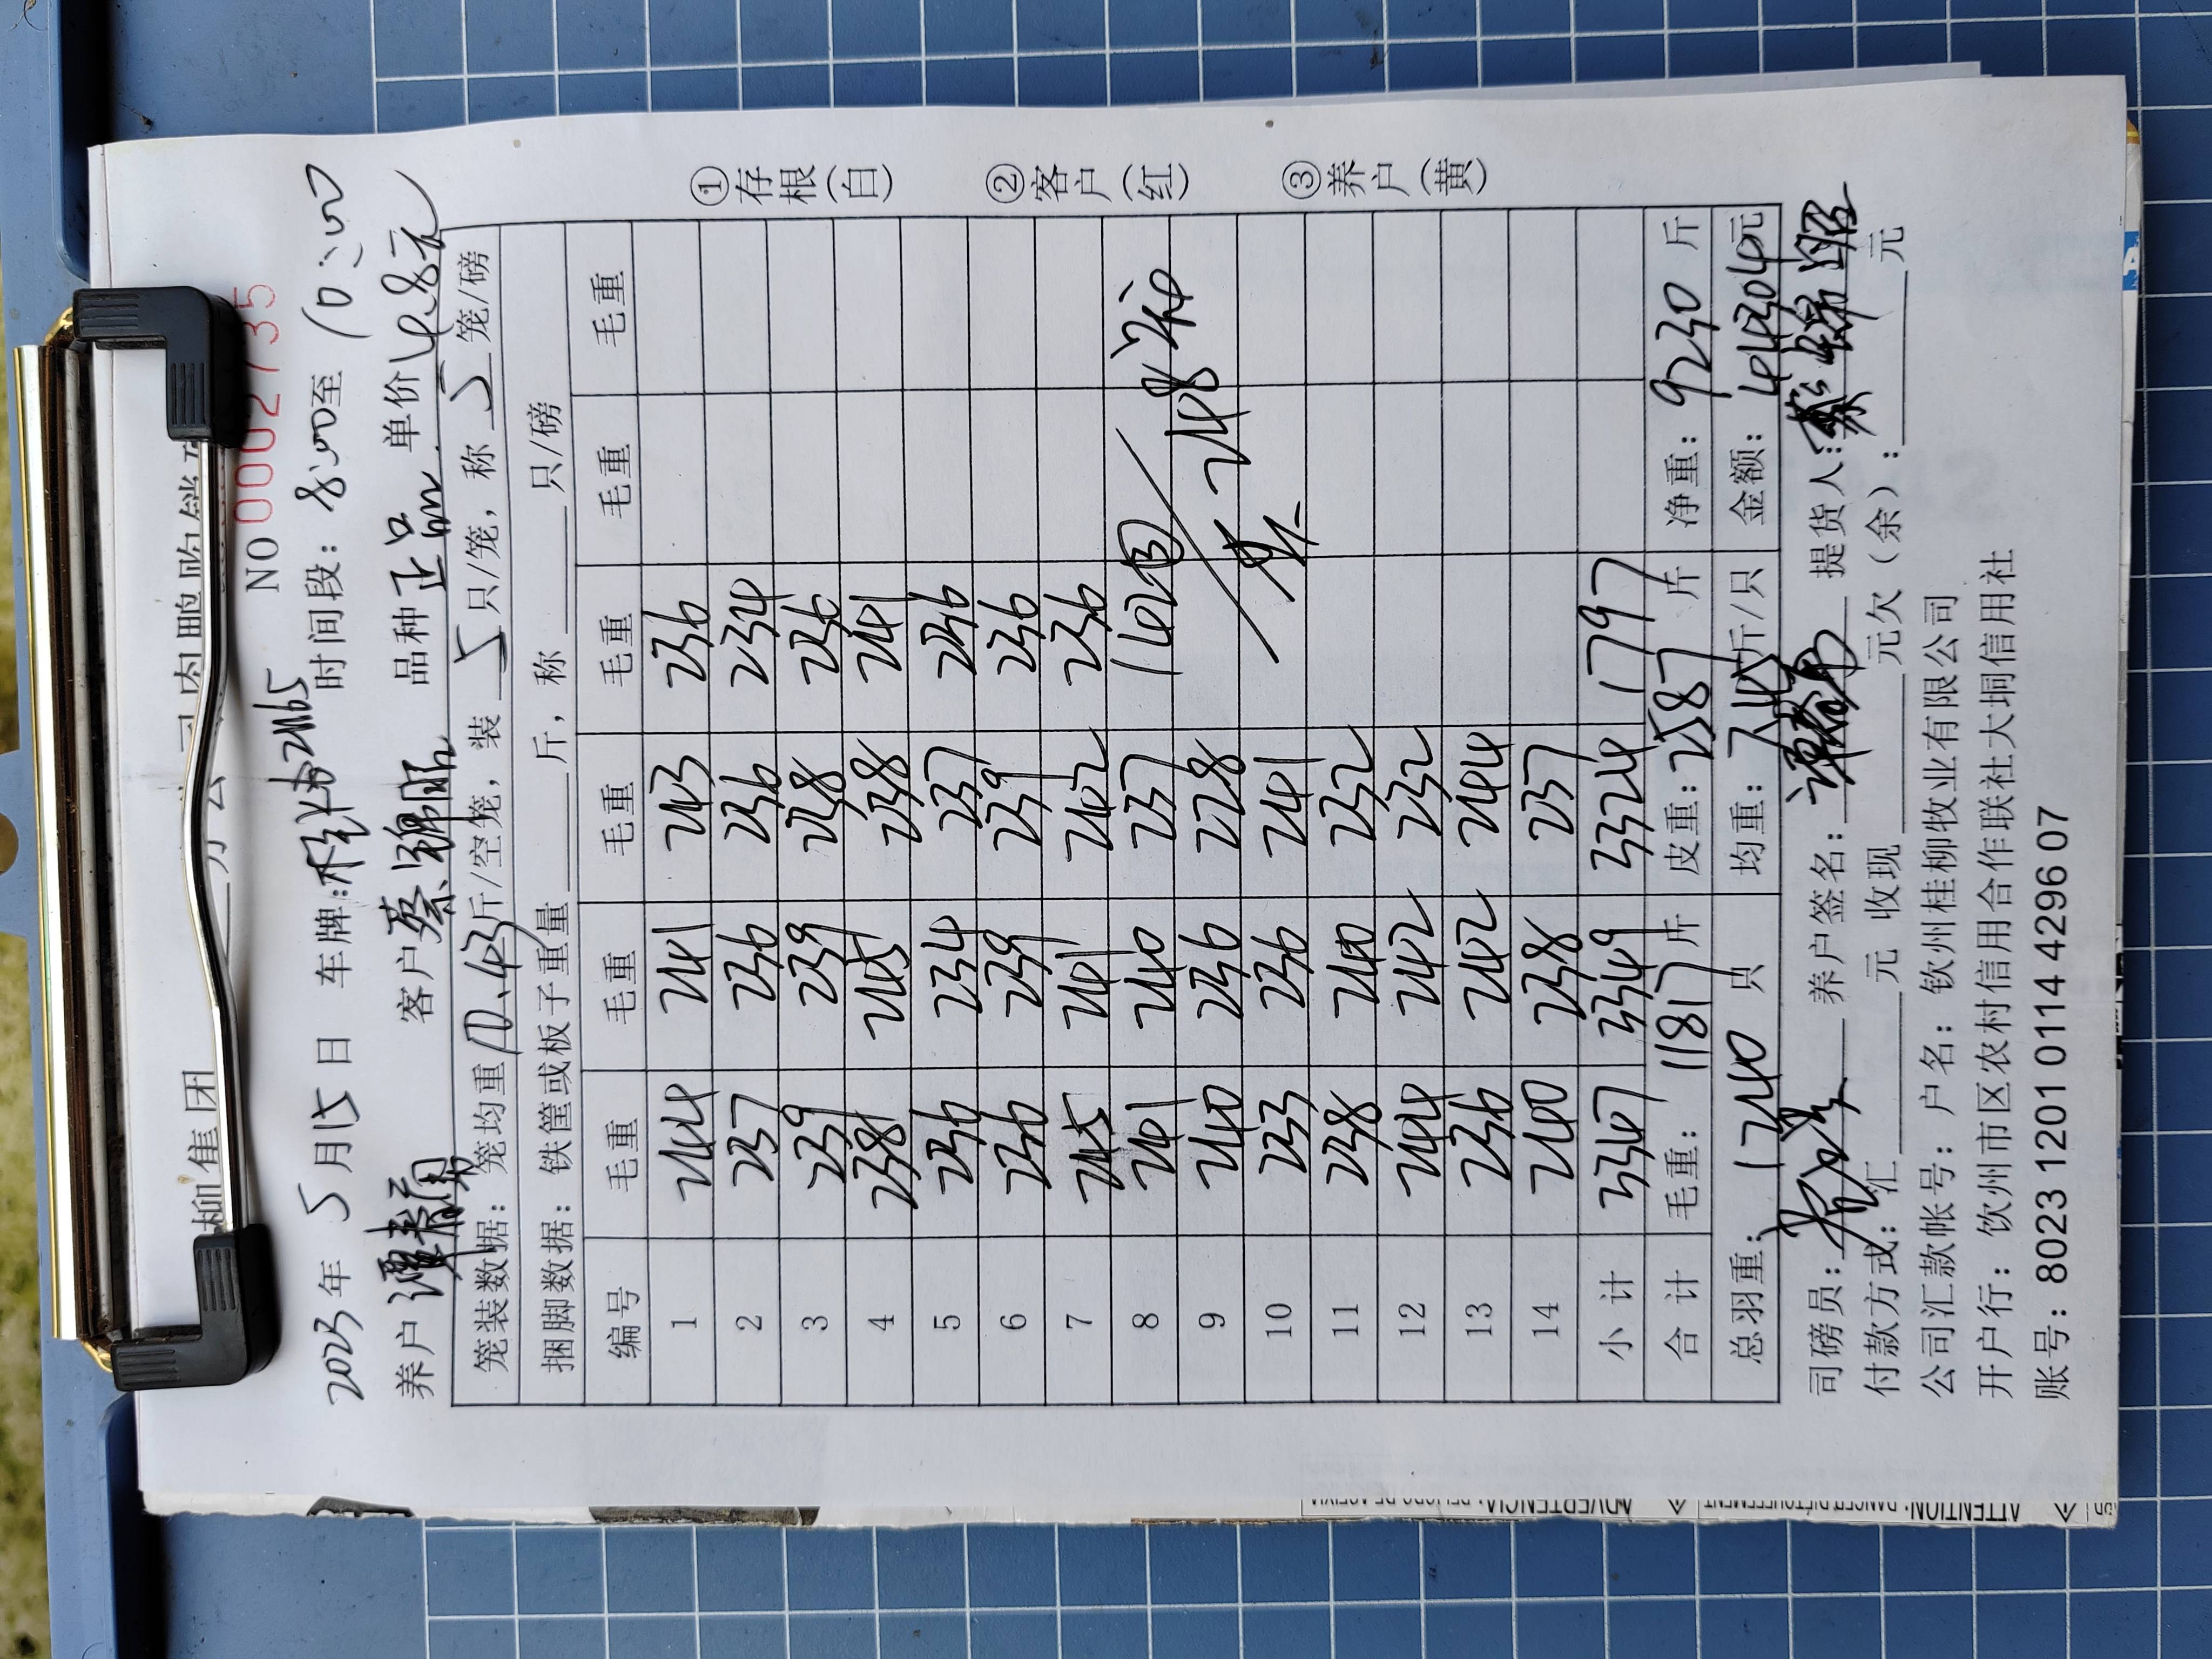 柳集团
NO 0002735
2023年 5月15日 车牌: 时间段：8:00至 10:00
养户 客户 蔡锦昭 品种 正品 单价 4.8元
笼装数据：笼均重 10.43斤/空笼，装 5 只/笼，称 5 笼/磅
捆脚数据：铁筐或板子重量 斤，称 只/磅
编号 毛重 毛重 毛重 毛重 毛重
1 244 241 243 236
2 237 236 236 234
3 239 239 238 236
4 238 245 238 241
5 236 234 237 236
6 236 239 239 236
7 245 241 242 236
8 241 240 237 142
9 240 236 228 248
10 233 236 241
11 238 240 232
12 244 242 232
13 236 242 244
14 240 238 237
小计 3347 3349 3324 1797
合计 毛重： 11817斤 皮重：2587斤 净重：9230 斤
总羽重： 1240 只 均重：7.45斤/只 金额：44304元
司磅员： 养户签名： 提货人：蔡锦昭
付款方式：汇 元 收现 元欠（余）： 元
公司汇款帐号：户名：钦州桂柳牧业有限公司
开户行：钦州市区农村信用合作联社大垌信用社
账号：8023 1201 0114 4296 07
①存根(白)
②客户(红)
③养户(黄)